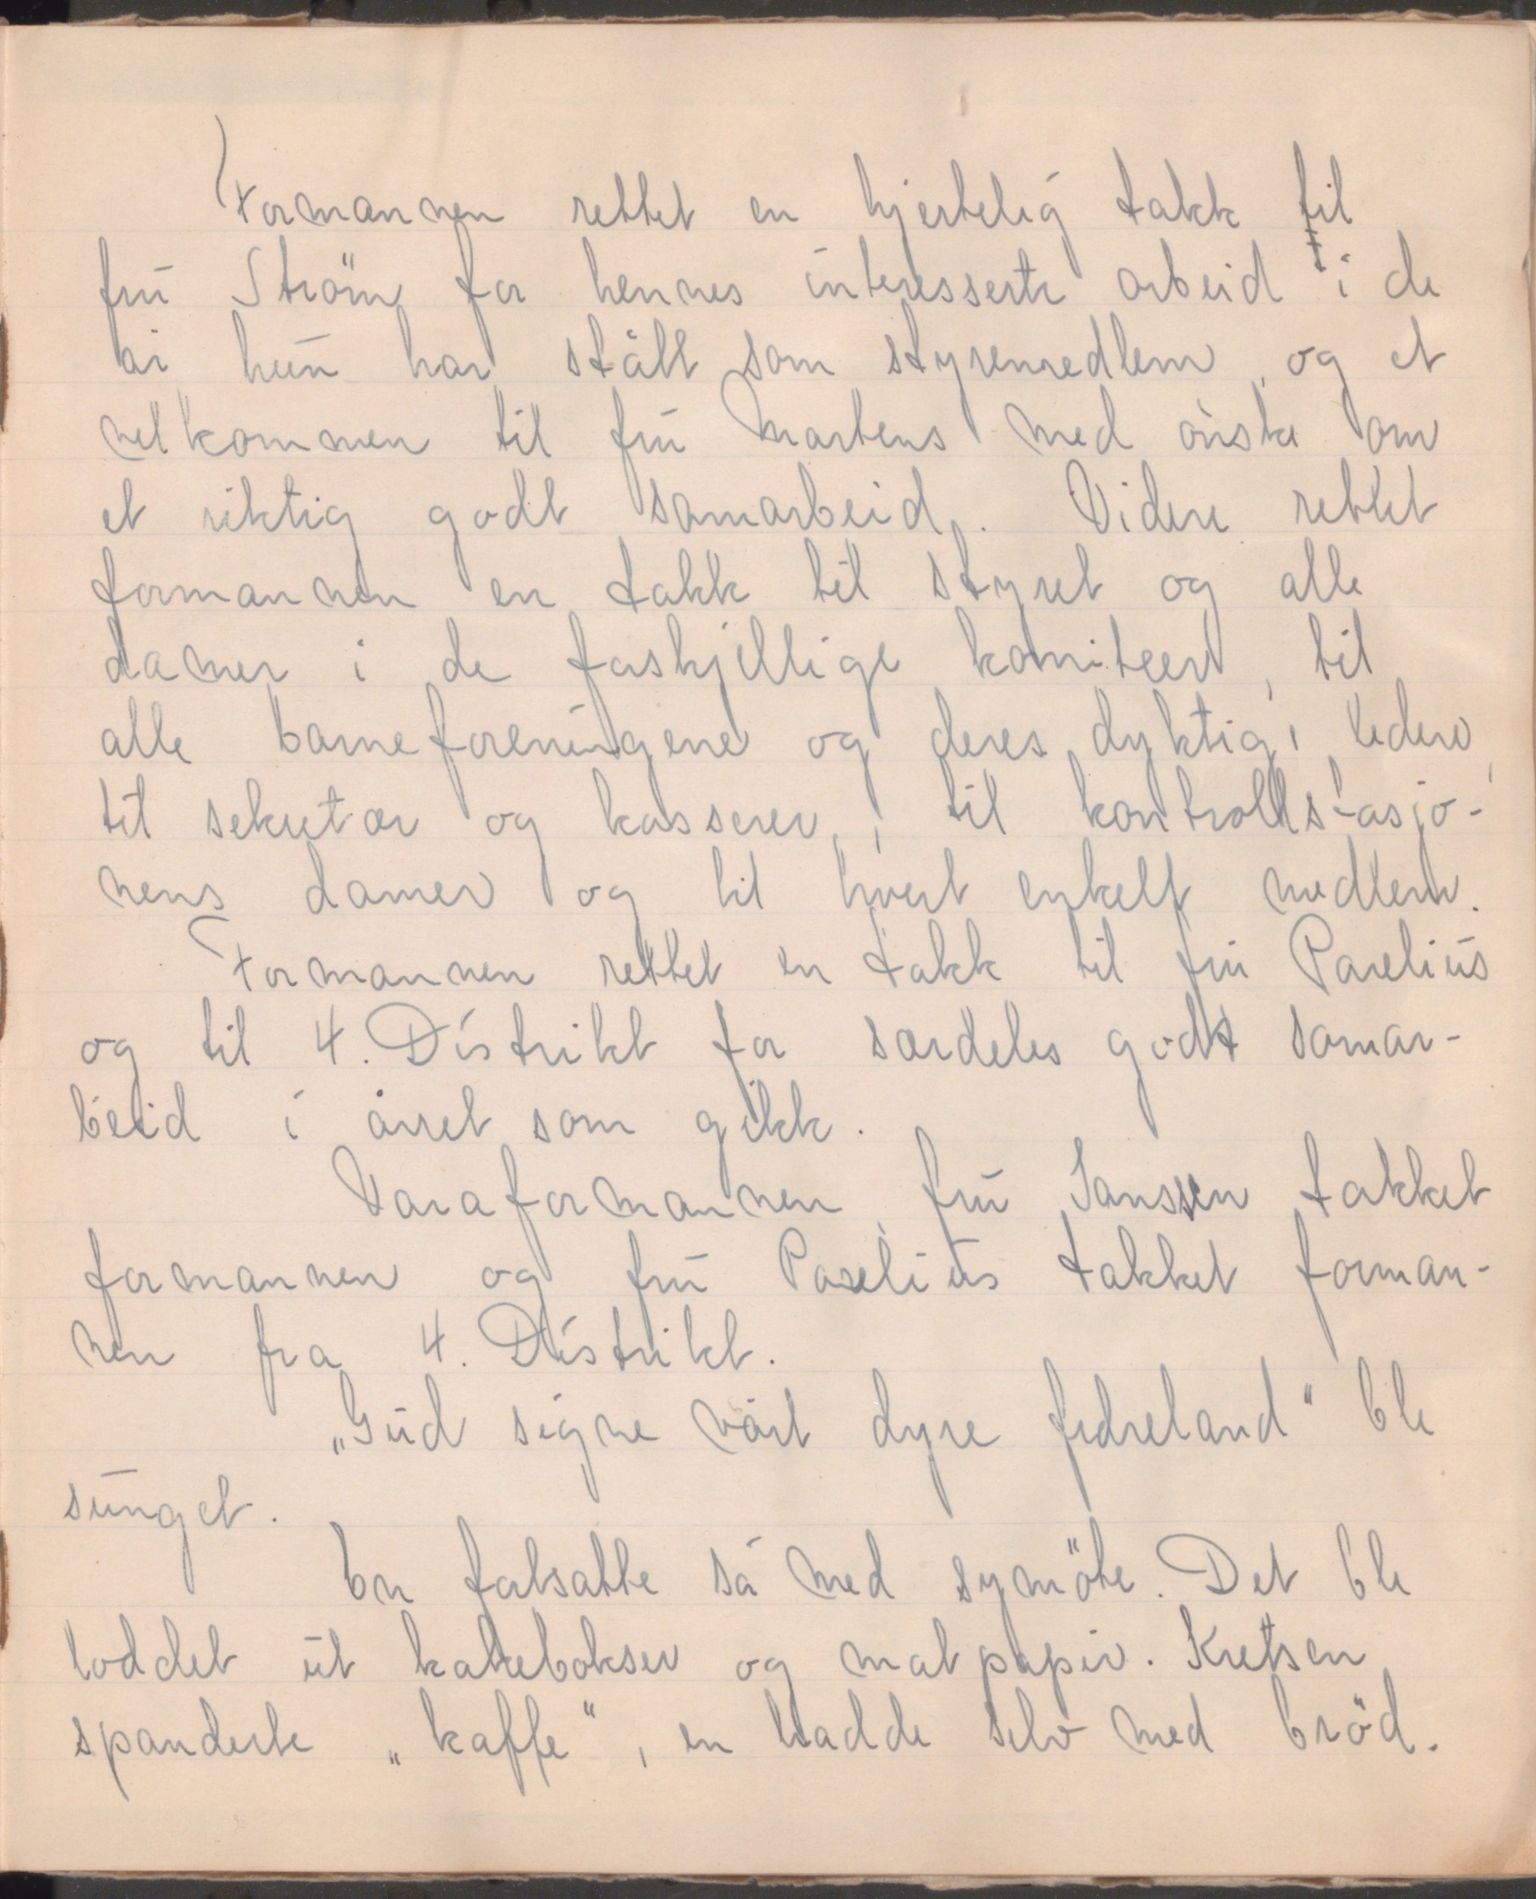 Formannen rettet en hjertelig takk til
fru Ström for hennes interesserte arbeid i de
år hun har stått som styremedlem, og et
velkommen til fru Martens med önske om
et riktig godt samarbeid. Videre rettet
formannen en takk til styret og alle
damer i de forskjellige komiteer, til
alle barneforeningene og deres dyktige ledere,
til sekretær og kasserer, til kontrollstasjo-
nens damer og til hvert enkelt medlem.
Formannen rettet en takk til fru Paxelius
og til 4. Distrikt for særdeles godt samar-
beid i året som gikk.
Varaformannen, fru Janssen takket
formannen og fru Paxelius takket forman-
nen fra 4. Distrikt.
„Gud signe vårt dyre fedreland" ble
sunget.
En fortsatte så med symöte. Det ble
loddet ut kakebokser og matpapir. Kretsen
spanderte „kaffe", en hadde selv med bröd.